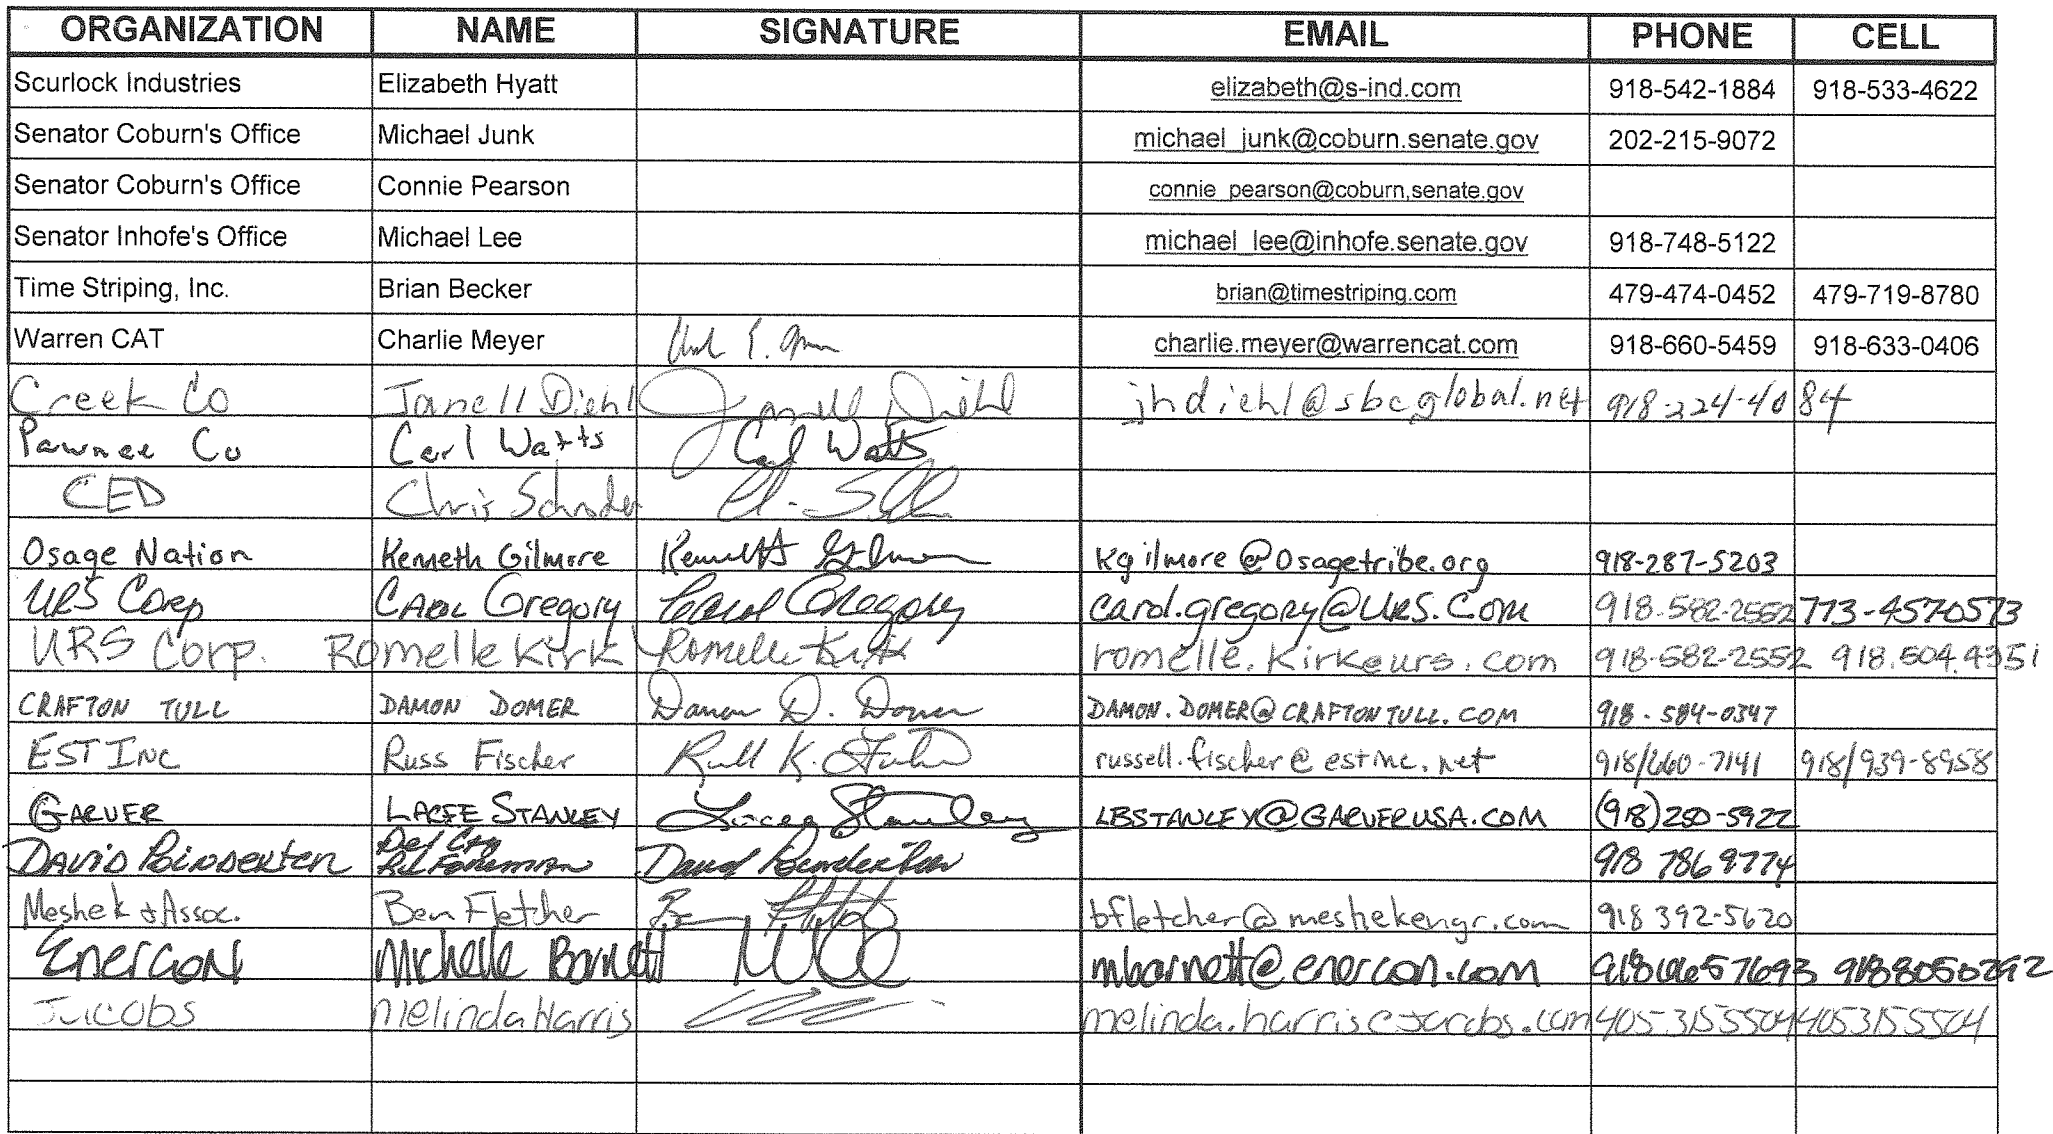 ORGANIZATION NAME SIGNATURE EMAIL PHONE CELL
Scurlock Industries Elizabeth Hyatt elizabeth@s-ind.com 918-542-1884 918-533-4622
Senator Coburn's Office Michael Junk michael_junk@coburn.senate.gov 202-215-9072
Senator Coburn's Office Connie Pearson connie_pearson@coburn,senate.gov
Senator Inhofe's Office Michael Lee michael_lee@inhofe.senate.gov 918-748-5122
Time Striping, Inc. Brian Becker brian@timestriping.com 479-474-0452 479-719-8780
Warren CAT Charlie Meyer charlie.meyer@warrencat.com 918-660-5459 918-633-0406
Creek Co Janell Diehl Janell Diehl jhdiehl@sbcglobal.net 918-224-4084
Pawnee Co Carl Watts Carl Watts
CED Chris Schroder
Osage Nation Kenneth Gilmore Kenneth Gilmore kgilmore@osagetribe.org 918-287-5203
URS Corp CAROL Gregory Carol Gregory carol.gregory@URS.Com 918-582-2552 773-4570573
URS Corp. Romelle Kirk Romelle Kirk romelle.kirk@urs.com 918-582-2552 918.504.9351
CRAFTON TULL DAMON DOMER Damon D. Domer DAMON.DOMER@CRAFTONTULL.COM 918-584-0347
EST INC Russ Fischer russell.fischer@estinc.net 918/660-7141 918/939-8958
GARVER LACEE STANLEY Lacee Stanley LBSTANLEY@GARVERUSA.COM (918)250-5922
DAVID POINDEXTER Rd Foreman David Poindexter 918 786 9774
Meshek & Assoc. Ben Fletcher bfletcher@meshekengr.com 918 392-5620
Enercon Michelle Barnett mbarnett@enercon.com 9186657693 9188050292
Jacobs Melinda Harris melinda.harris@jacobs.com 4053155504 4053155504